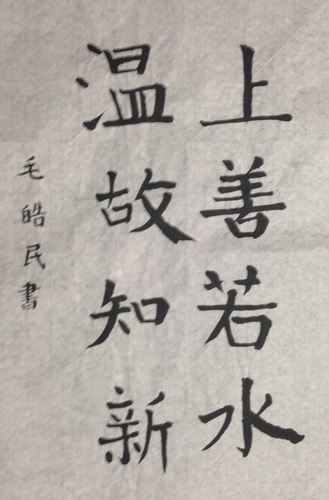 上善若水
温故知新
毛皓民書